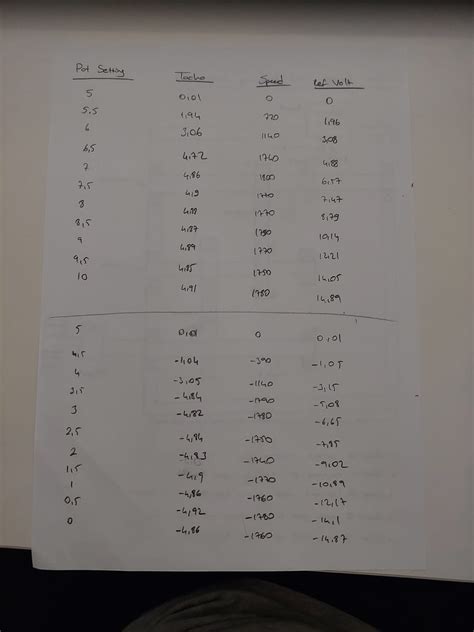 Pot Setting Tacho Speed Ref Volt
5 0,01 0 0
5.5 1,94 720 1,96
6 3,06 1140 3,08
6,5 4,72 1740 4,88
7 4,86 1800 6,57
7,5 4,9 1770 7,47
8 4,88 1770 8,79
8,5 4,87 1790 10,14
9 4,89 1770 12,21
9,5 4,85 1750 14,05
10 4,91 1780 14,89
5 0,01 0 0,01
4,5 -1,04 -390 -1,05
4 -3,05 -1140 -3,15
3,5 -4,84 -1790 -5,08
3 -4,82 -1780 -6,65
2,5 -4,84 -1750 -7,85
2 -4,83 -1740 -9,02
1,5 -4,9 -1770 -10,89
1 -4,86 -1760 -12,17
0,5 -4,92 -1780 -14,1
0 -4,86 -1760 -14,87